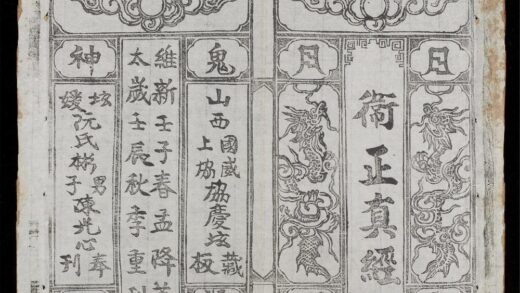 日
衛正真經
月
鬼
山西國威上協協慶坛藏板
維新壬子春孟降
太歲壬辰秋季重
神
坛媛阮氏彬男子陳光心奉刊